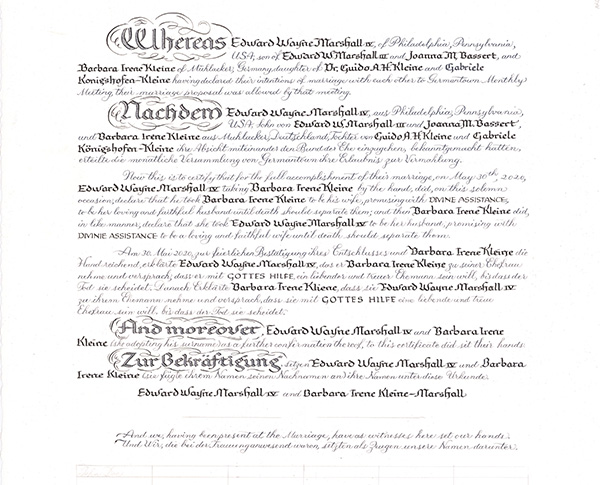 Whereas Edward Wayne Marshall IV, of Philadelphia, Pennsylvania,
USA, son of Edward W. Marshall III and Joanna M. Bassert, and
Barbara Irene Kleine of Muhlacker, Germany, daughter of Dr. Guido A. H. Kleine and Gabriele
Konigshofen-Kleine having declared their intentions of marriage with each other to Germantown Monthly
Meeting, their marriage proposal was allowed by that meeting.
Nachdem Edward Wayne Marshall IV, aus Philadelphia, Pennsylvania,
USA, Sohn von Edward W. Marshall III und Joanna M. Bassert,
und Barbara Irene Kleine aus Muhlacker, Deutschland, Tochter von Guido A. H. Kleine und Gabriele
Königshofen-Kleine ihre Absicht miteinander den Bund der Ehe einzugehen, bekanntgemacht hatten,
erteilte die monatliche Versammlung von Germantown ihre Erlaubnis zur Vermählung.
Now this is to certify that for the full accomplishment of their marriage, on May 30th 2020,
Edward Wayne Marshall IV taking Barbara Irene Kleine by the hand, did, on this solemn
occasion, declare that he took Barbara Irene Kleine to be his wife, promising with DIVINE ASSISTANCE,
to be her loving and faithful husband until death should separate them; and then Barbara Irene Kleine did,
in like manner, declare that she took Edward Wayne Marshall IV to be her husband, promising with
DIVINIE ASSISTANCE to be a loving and faithful wife until death should separate them.
Am 30. Mai 2020, zur feierlichen Bestätigung ihres Entschlusses und Barbara Irene Kleine die
Hand reichend, erklärte Edward Wayne Marshall IV, das er Barbara Irene Kleine zu seiner Ehefrau
nehme und versprach, dass er mit GOTTES HILFE, ein liebender und treuer Ehemann sein will, bis dass der
Tod sie scheidet. Danach Erklärte Barbara Irene Kliene, dass sie Edward Wayne Marshall IV
zu ihrem Ehemann nehme und versprach, dass sie mit GOTTES HILFE eine liebende und treue
Ehefrau sein will, bis dass der Tod sie scheidet.
And moreover, Edward Wayne Marshall IV and Barbara Irene
Kleine (she adopting his surname) as a further confirmation thereof, to this certificate did set their hands.
Zur Bekräftigung, setzen Edward Wayne Marshall IV und Barbara
Irene Kleine (sie fügte ihrem Namen seinen Nachnamen an) ihre Namen unter diese Urkunde.
Edward Wayne Marshall IV and Barbara Irene Kleine-Marshall
And we, having been present at the Marriage, have as witnesses here set our hands.
Und Wir, die bei der Trauung anwesend waren, setzten als Zeugen unsere Namen darunter.